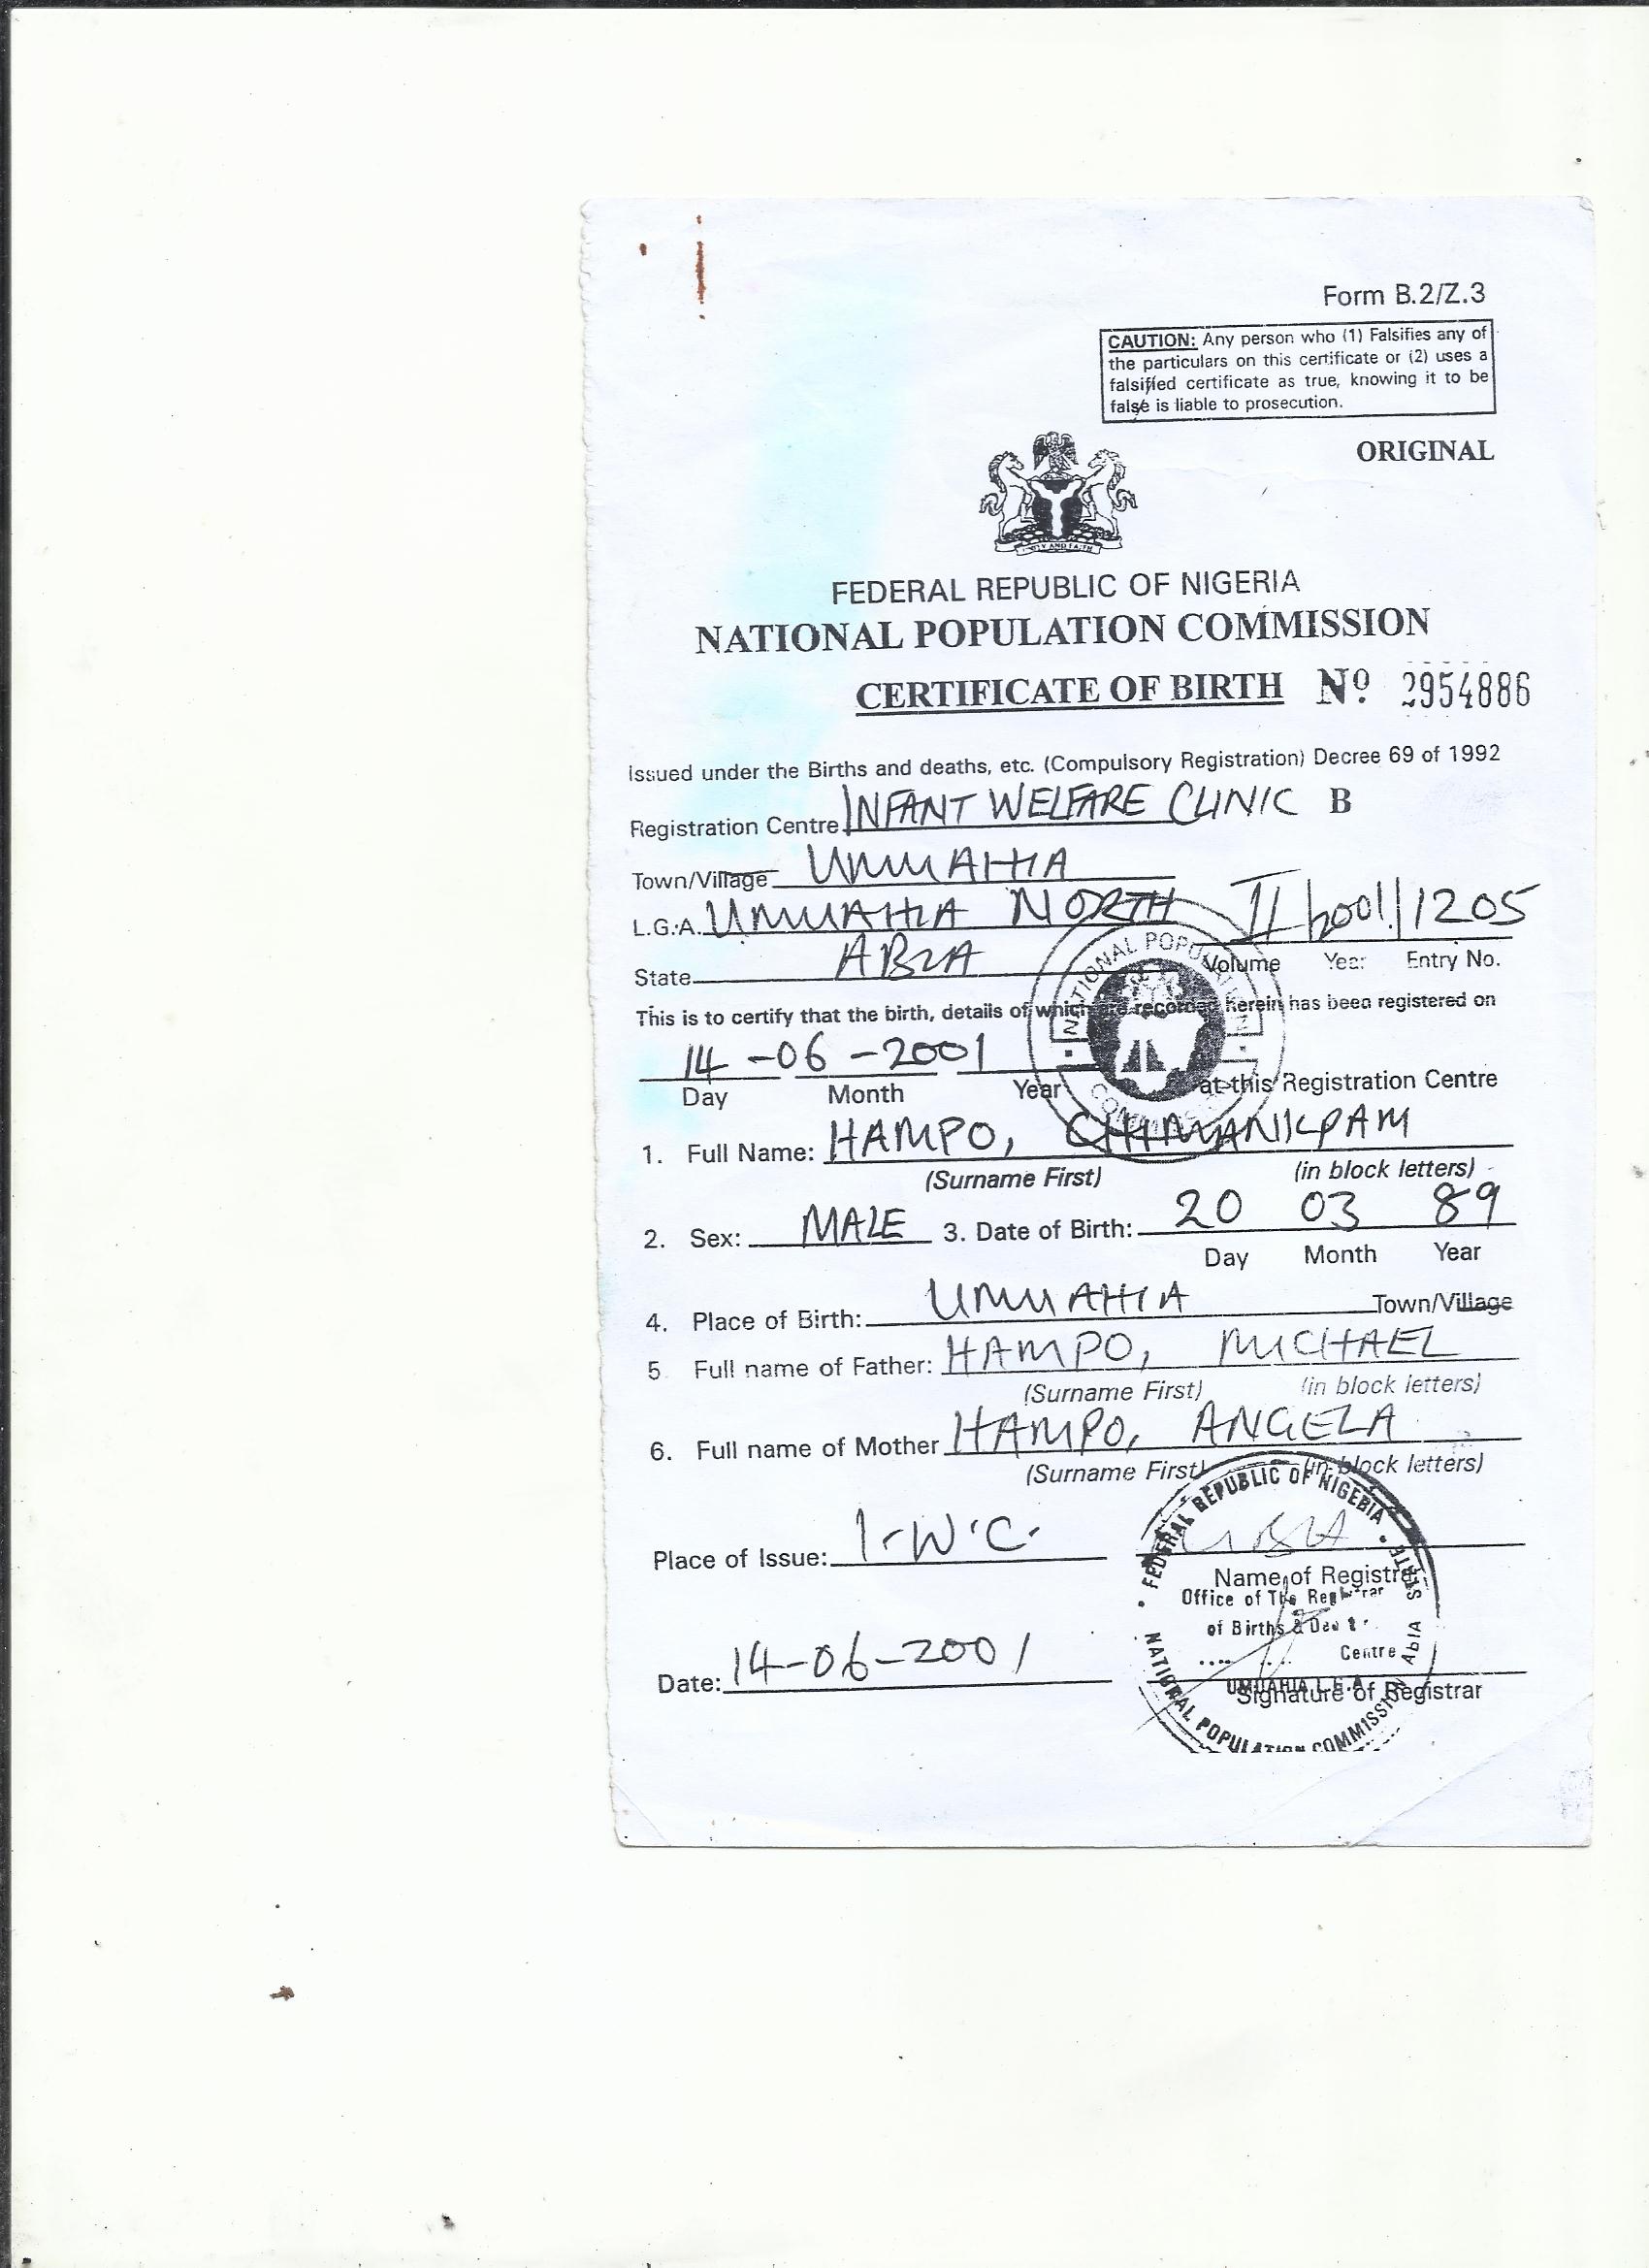 Form B.2/Z.3
CAUTION: Any person who (1) Falsifies any of
the particulars on this certificate or (2) uses a
falsified certificate as true, knowing it to be
false is liable to prosecution.
ORIGINAL
FEDERAL REPUBLIC OF NIGERIA
NATIONAL POPULATION COMMISSION
CERTIFICATE OF BIRTH Nº 2954886
Issued under the Births and deaths, etc. (Compulsory Registration) Decree 69 of 1992
Registration Centre INFANT WELFARE CLINIC B
Town/Village UMUAHIA
L.G.A. UMUAHIA NORTH II/2001/1205
State ABIA Volume Year Entry No.
This is to certify that the birth, details of which are recorded herein has been registered on
14-06-2001
Day Month Year at this Registration Centre
1. Full Name: HAMPO, CHIMANKPAM
(Surname First) (in block letters)
2. Sex: MALE 3. Date of Birth: 20 03 89
Day Month Year
4. Place of Birth: UMUAHIA Town/Village
5 Full name of Father: HAMPO, MICHAEL
(Surname First) (in block letters)
6. Full name of Mother HAMPO, ANGELA
(Surname First) (in block letters)
Place of Issue: I.W.C.
Name of Registrar
Date: 14-06-2001
Signature of Registrar
NATIONAL POPULATION COMMISSION
FEDERAL REPUBLIC OF NIGERIA
Office of The Registrar
of Births &
Centre
UMUAHIA L.G.A.
ABIA STATE
NATIONAL POPULATION COMMISSION